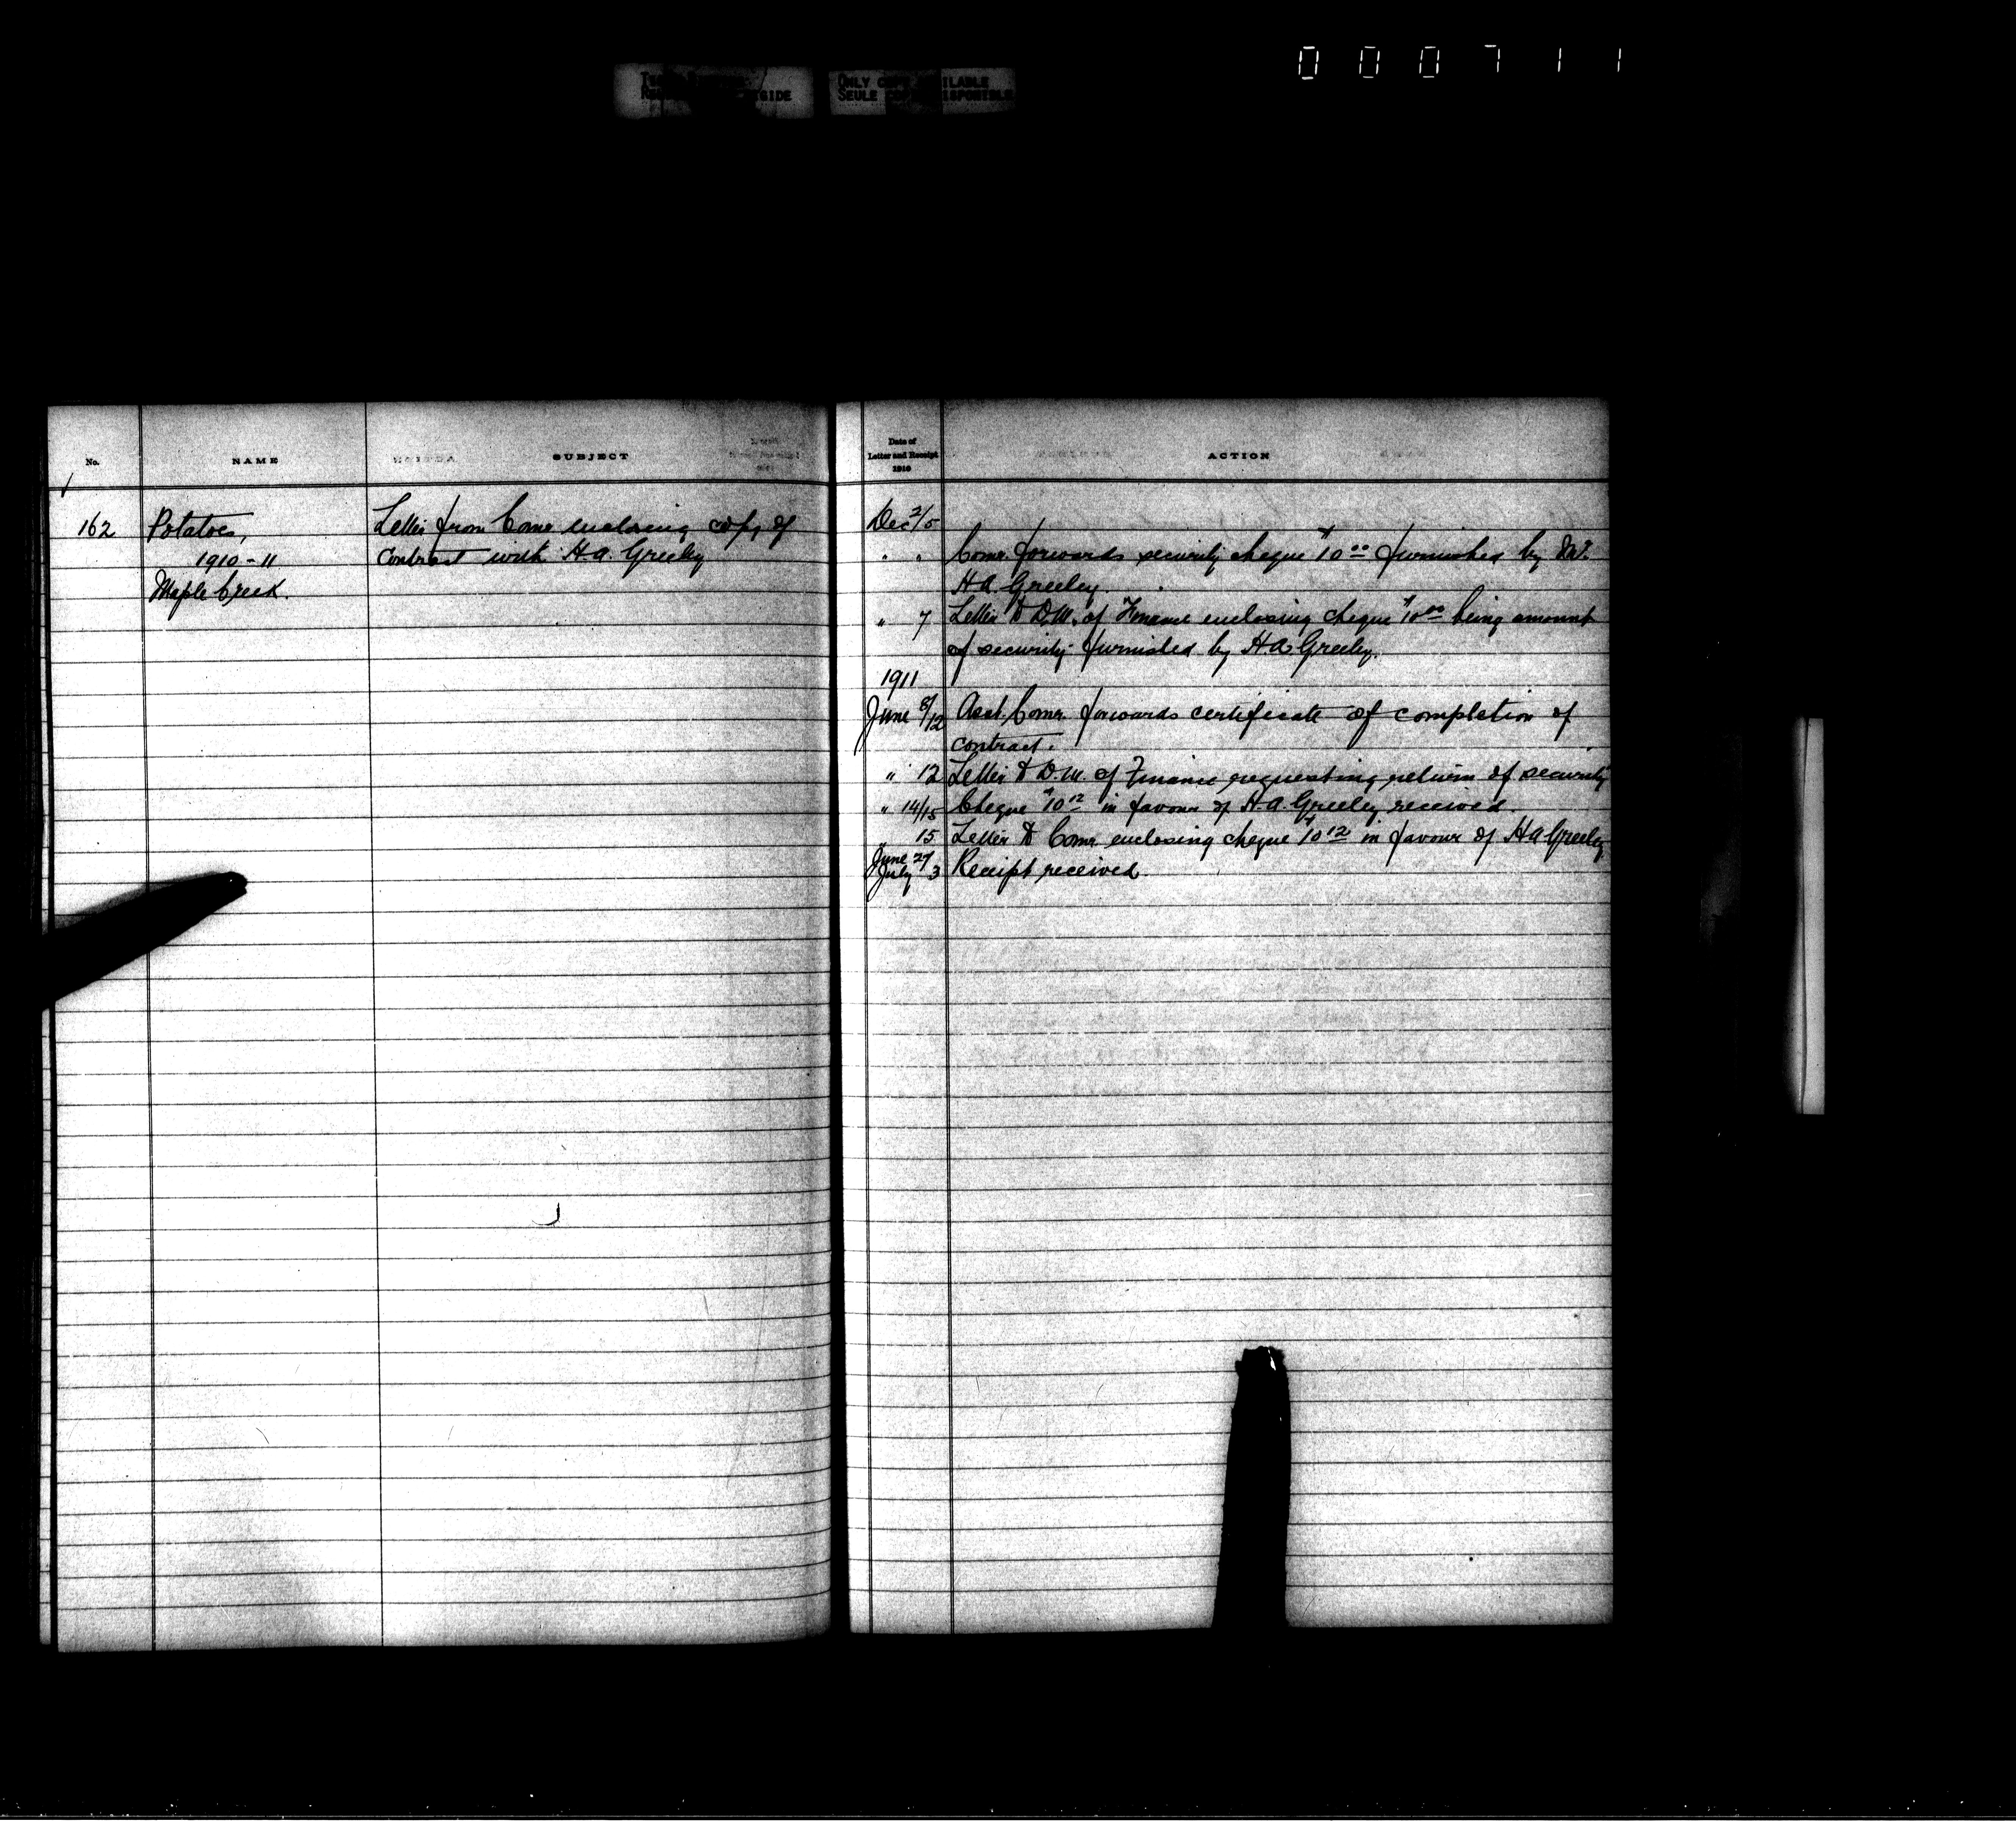 000711
ONLY COPY AVAILABLE
SEULE COPIE DISPONIBLE
No.
NAME
SUBJECT
162 Potatoes, Letter from Comr enclosing copy of
1910-11 contract with H.A. Greeley
Maple Creek.
Date of
Letter and Receipt
1910
ACTION
Dec 2/5
" " Comr. forwards security cheque $10 00 furnished by Mr.
H.A. Greeley.
" 7 Letter to D.M. of Finance enclosing cheque $10 00 being amount
of security furnished by H.A. Greeley.
1911
June 8/12 Asst. Comr. forwards certificate of completion of
contract.
" 12 Letter to D.M. of Finance requesting return of security
" 14/15 Cheque $10 12 in favour of H.A. Greeley received.
" 15 Letter to Comr enclosing cheque $10 12 in favour of H A Greeley
June 27
July 3 Receipt received